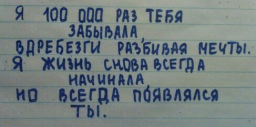 Я 100 000 РАЗ ТЕБЯ
ЗАБЫВАЛА
ВДРЕБЕЗГИ РАЗБИВАЯ МЕЧТЫ.
Я ЖИЗНЬ СНОВА ВСЕГДА
НАЧИНАЛА
НО ВСЕГДА ПОЯВЛЯЛСЯ
ТЫ.